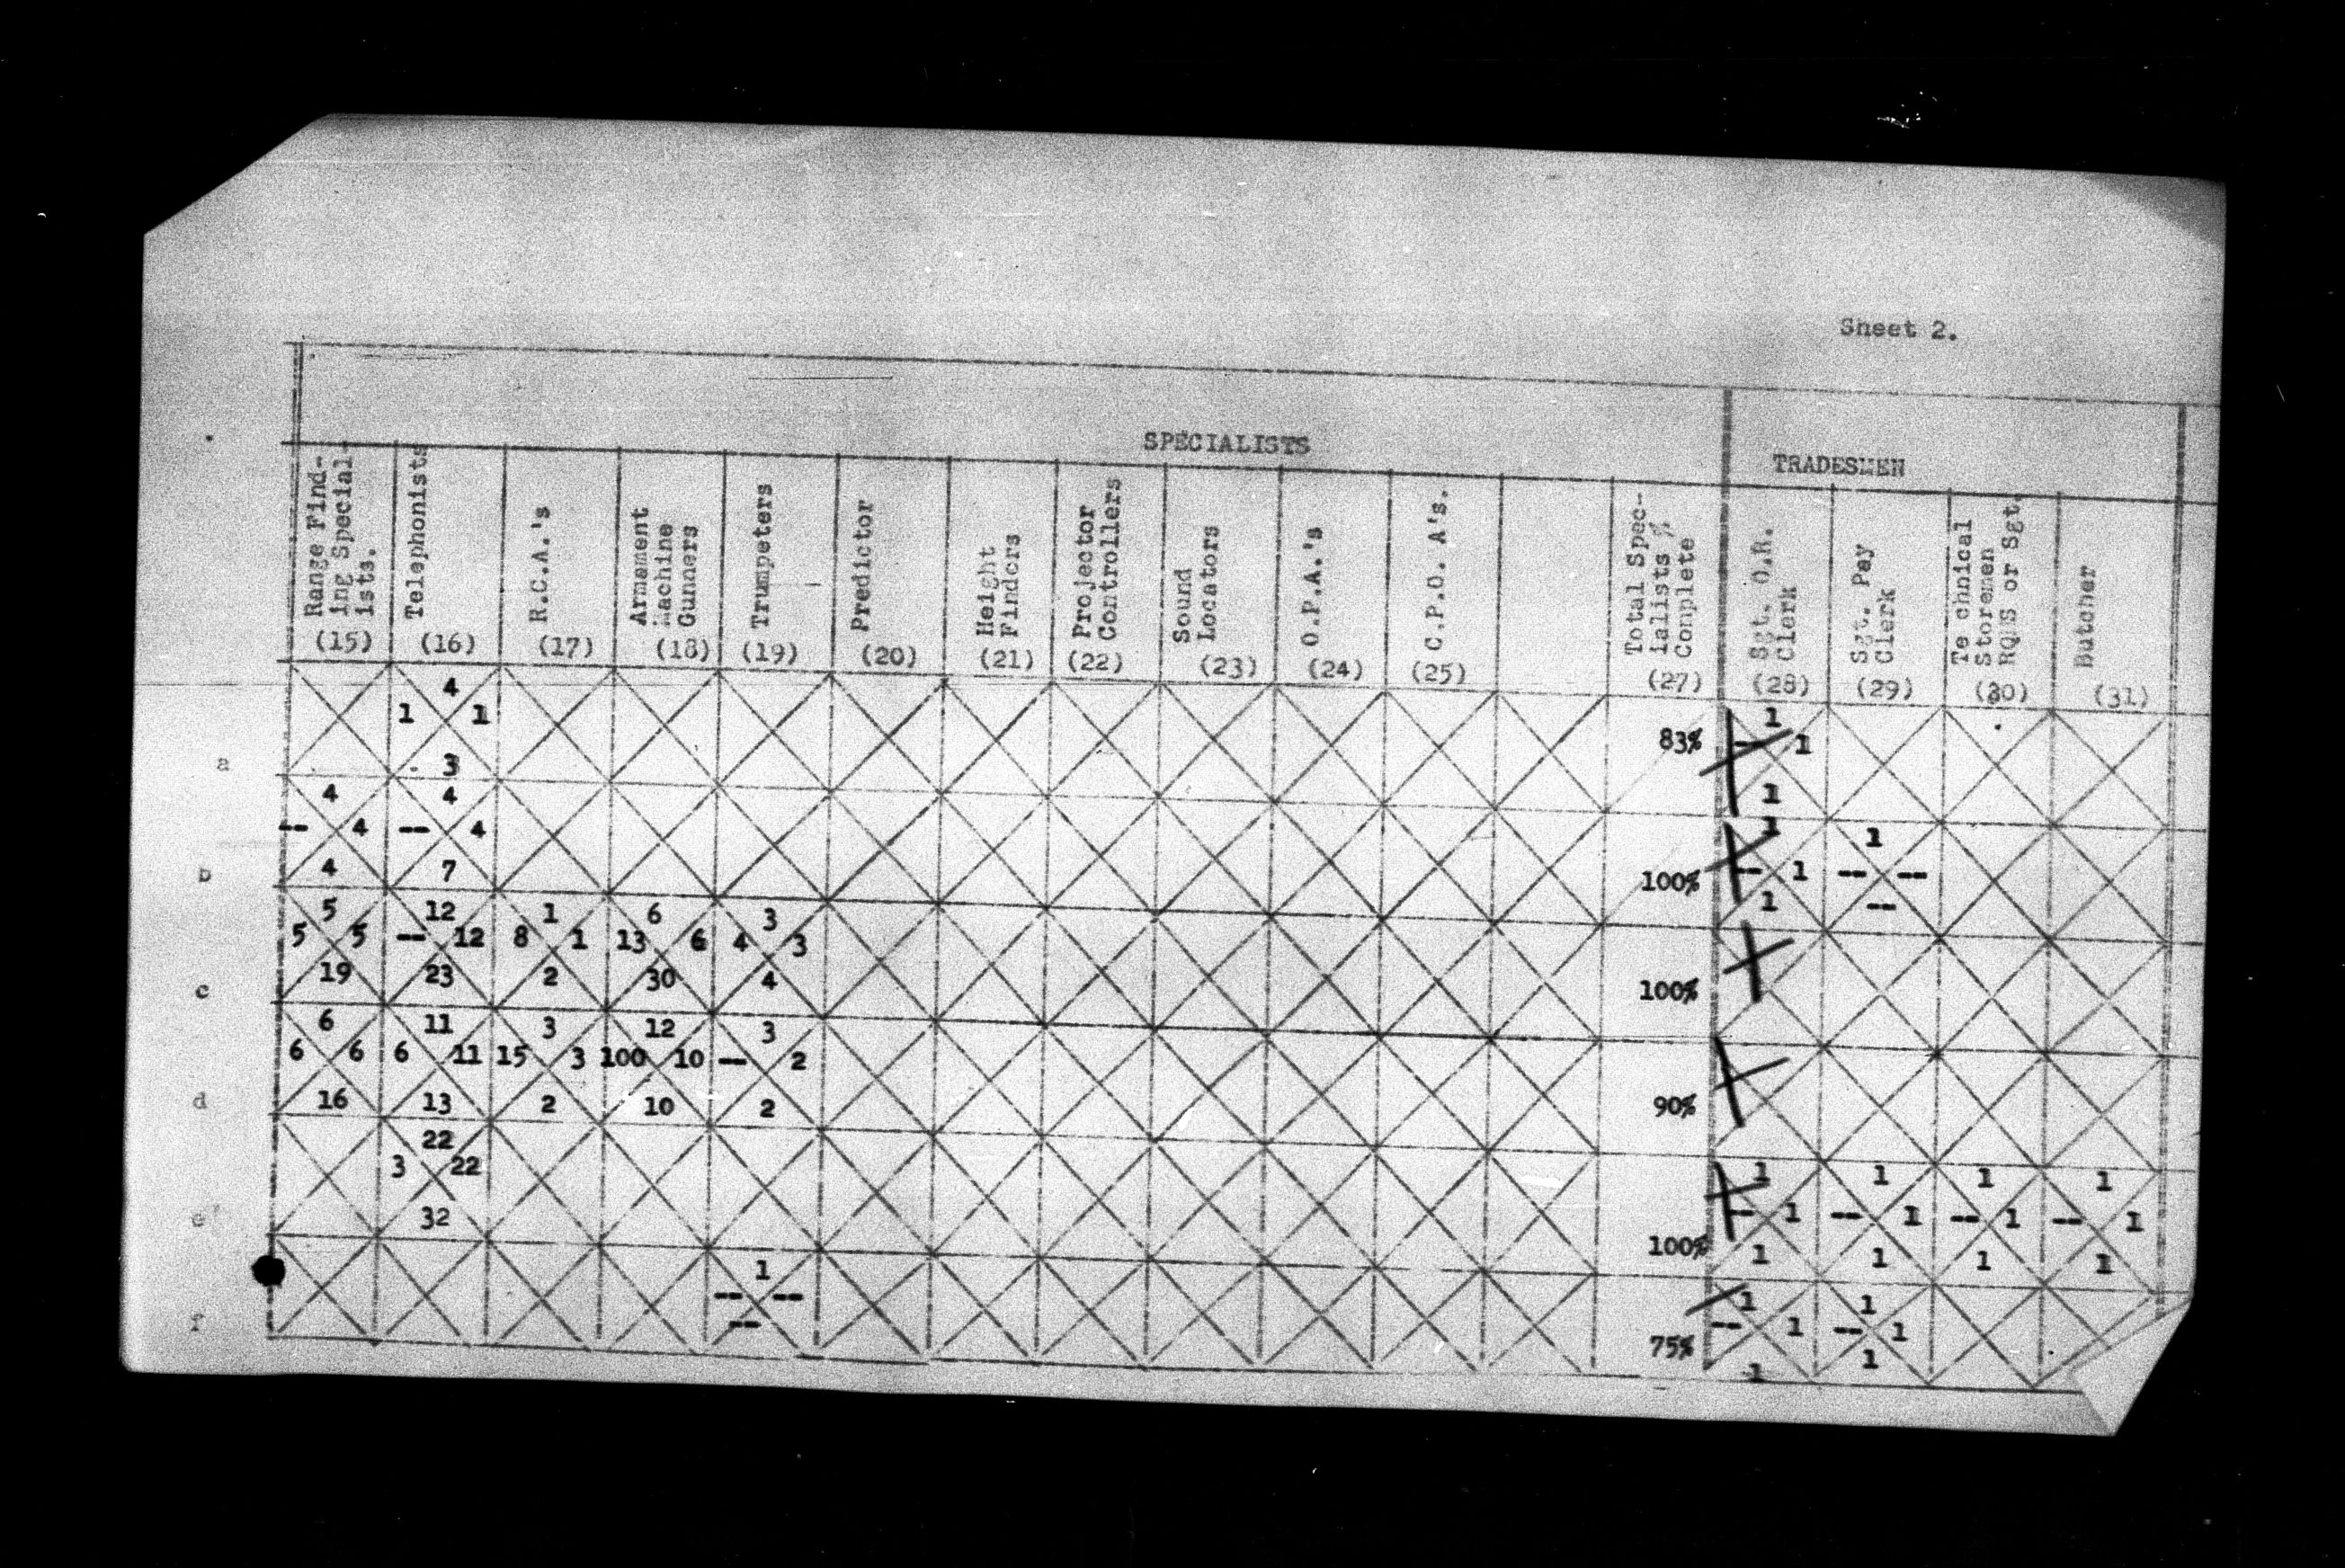 Sheet 2.
SPECIALISTS
TRADESMEN
Range Find-
ing Special-
ists.
(15)
Telephonists
(16)
R.C.A.'s
(17)
Armament
Machine
Gunners
(18)
Trumpeters
(19)
Predictor
(20)
Height
Finders
(21)
Projector
Controllers
(22)
Sound
Locators
(23)
O.P.A.'s
(24)
C.P.O. A's.
(25)
Total Spec-
ialists %
Complete
(27)
Sgt. O.R.
Clerk
(28)
Sgt. Pay
Clerk
(29)
Te chnical
Storemen
RQMS or Sgt.
(30)
Butcher
(31)
4 1
1 1 83% -- 1
a 3 1
4 4 1 1
-- 4 -- 4 100% -- 1 -- --
b 4 7 1 --
5 12 1 6 3
5 5 -- 12 8 1 13 6 4 3
c 19 23 2 30 4 100%
6 11 3 12 3
6 6 6 11 15 3 100 10 -- 2
d 16 13 2 10 2 90%
22 1 1 1 1
3 22 -- 1 -- 1 -- 1 -- 1
e 32 100% 1 1 1 1
1 1 1
-- -- -- 1 -- 1
f -- 75% 1 1